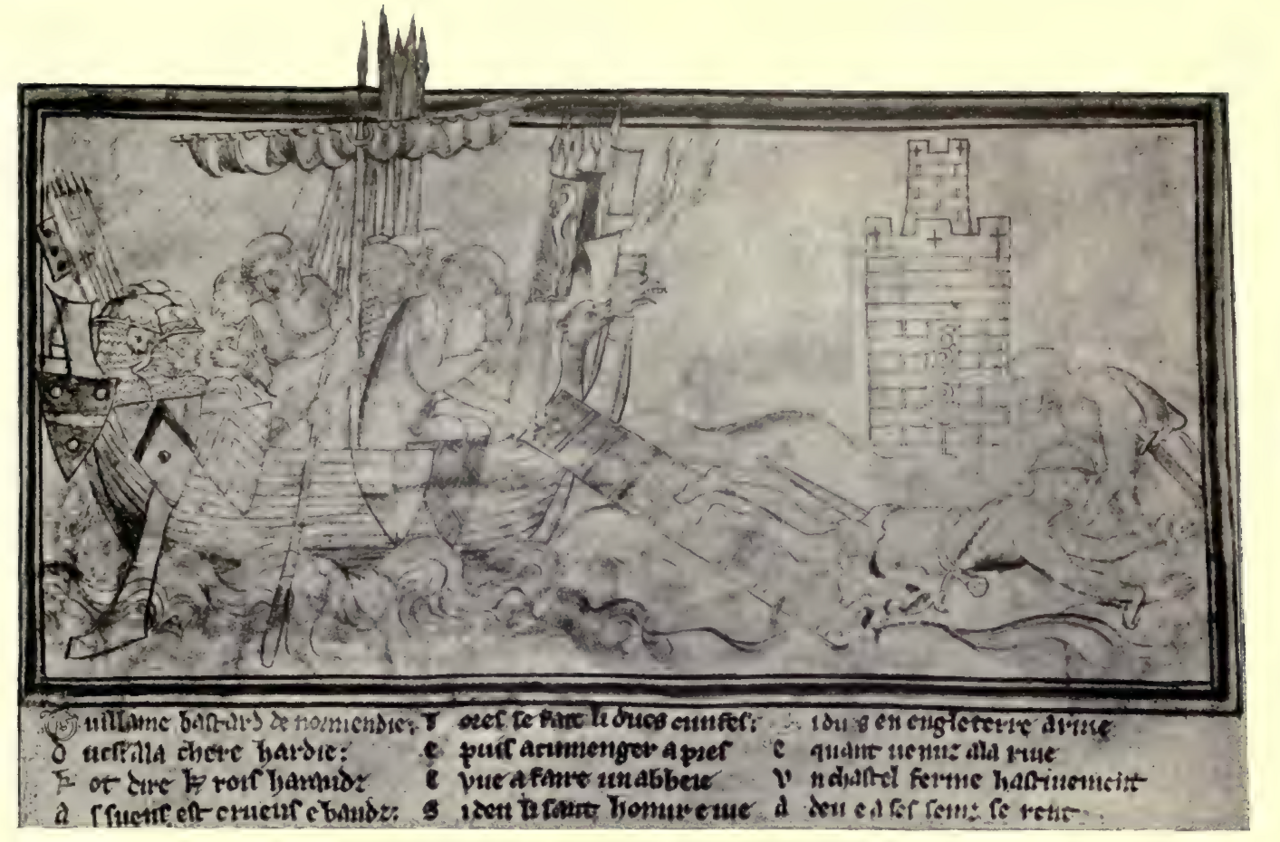 Guillame bastard de normendie:
O uest la chere hardie:
K ot dire ke rois haraudz
A s suens est crueus e baudz:
T ores se fait li ducs cunfes:
E puis acumenger apres
E vue a faire un abbeie
S i deu li saut honur e vie
i dux en engleterre arive
E quant venuz a la rive
V n chastel ferme hastivement
A deu e a ses seinz se rent